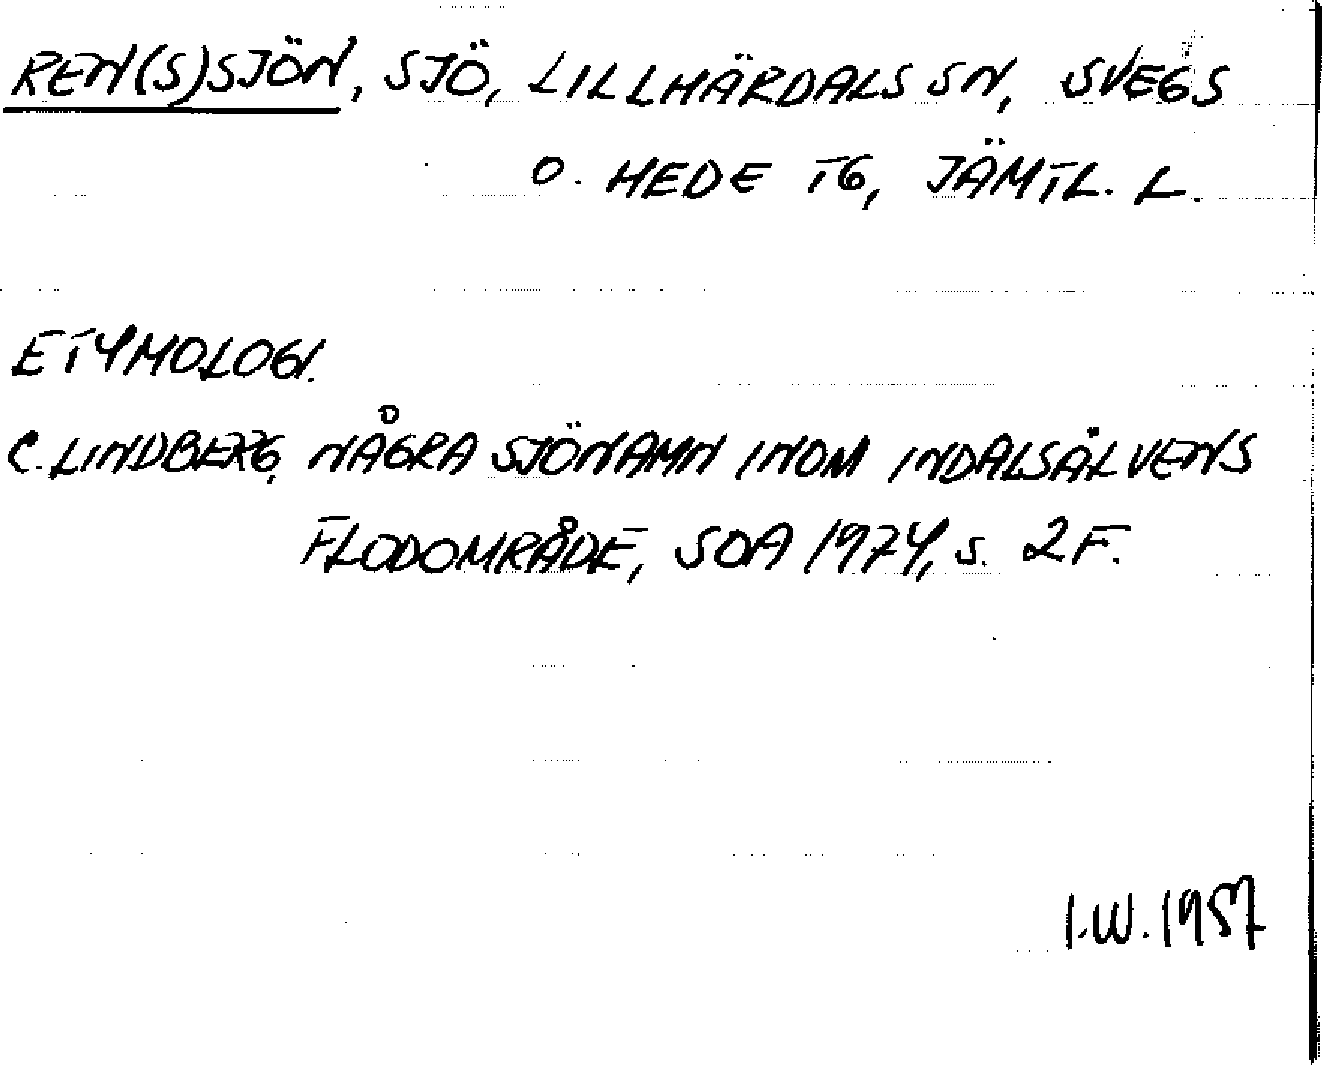 REN(S)SJÖN, SJÖ, LILLHÄRDALS SN, SVEGS
O. HEDE TG, JÄMTL. L.
ETYMOLOGI.
C. LINDBERG, NÅGRA SJÖNAMN INOM INDALSÄLVENS
FLODOMRÅDE, SOA 1974, S. 2 F.
I.W. 1957